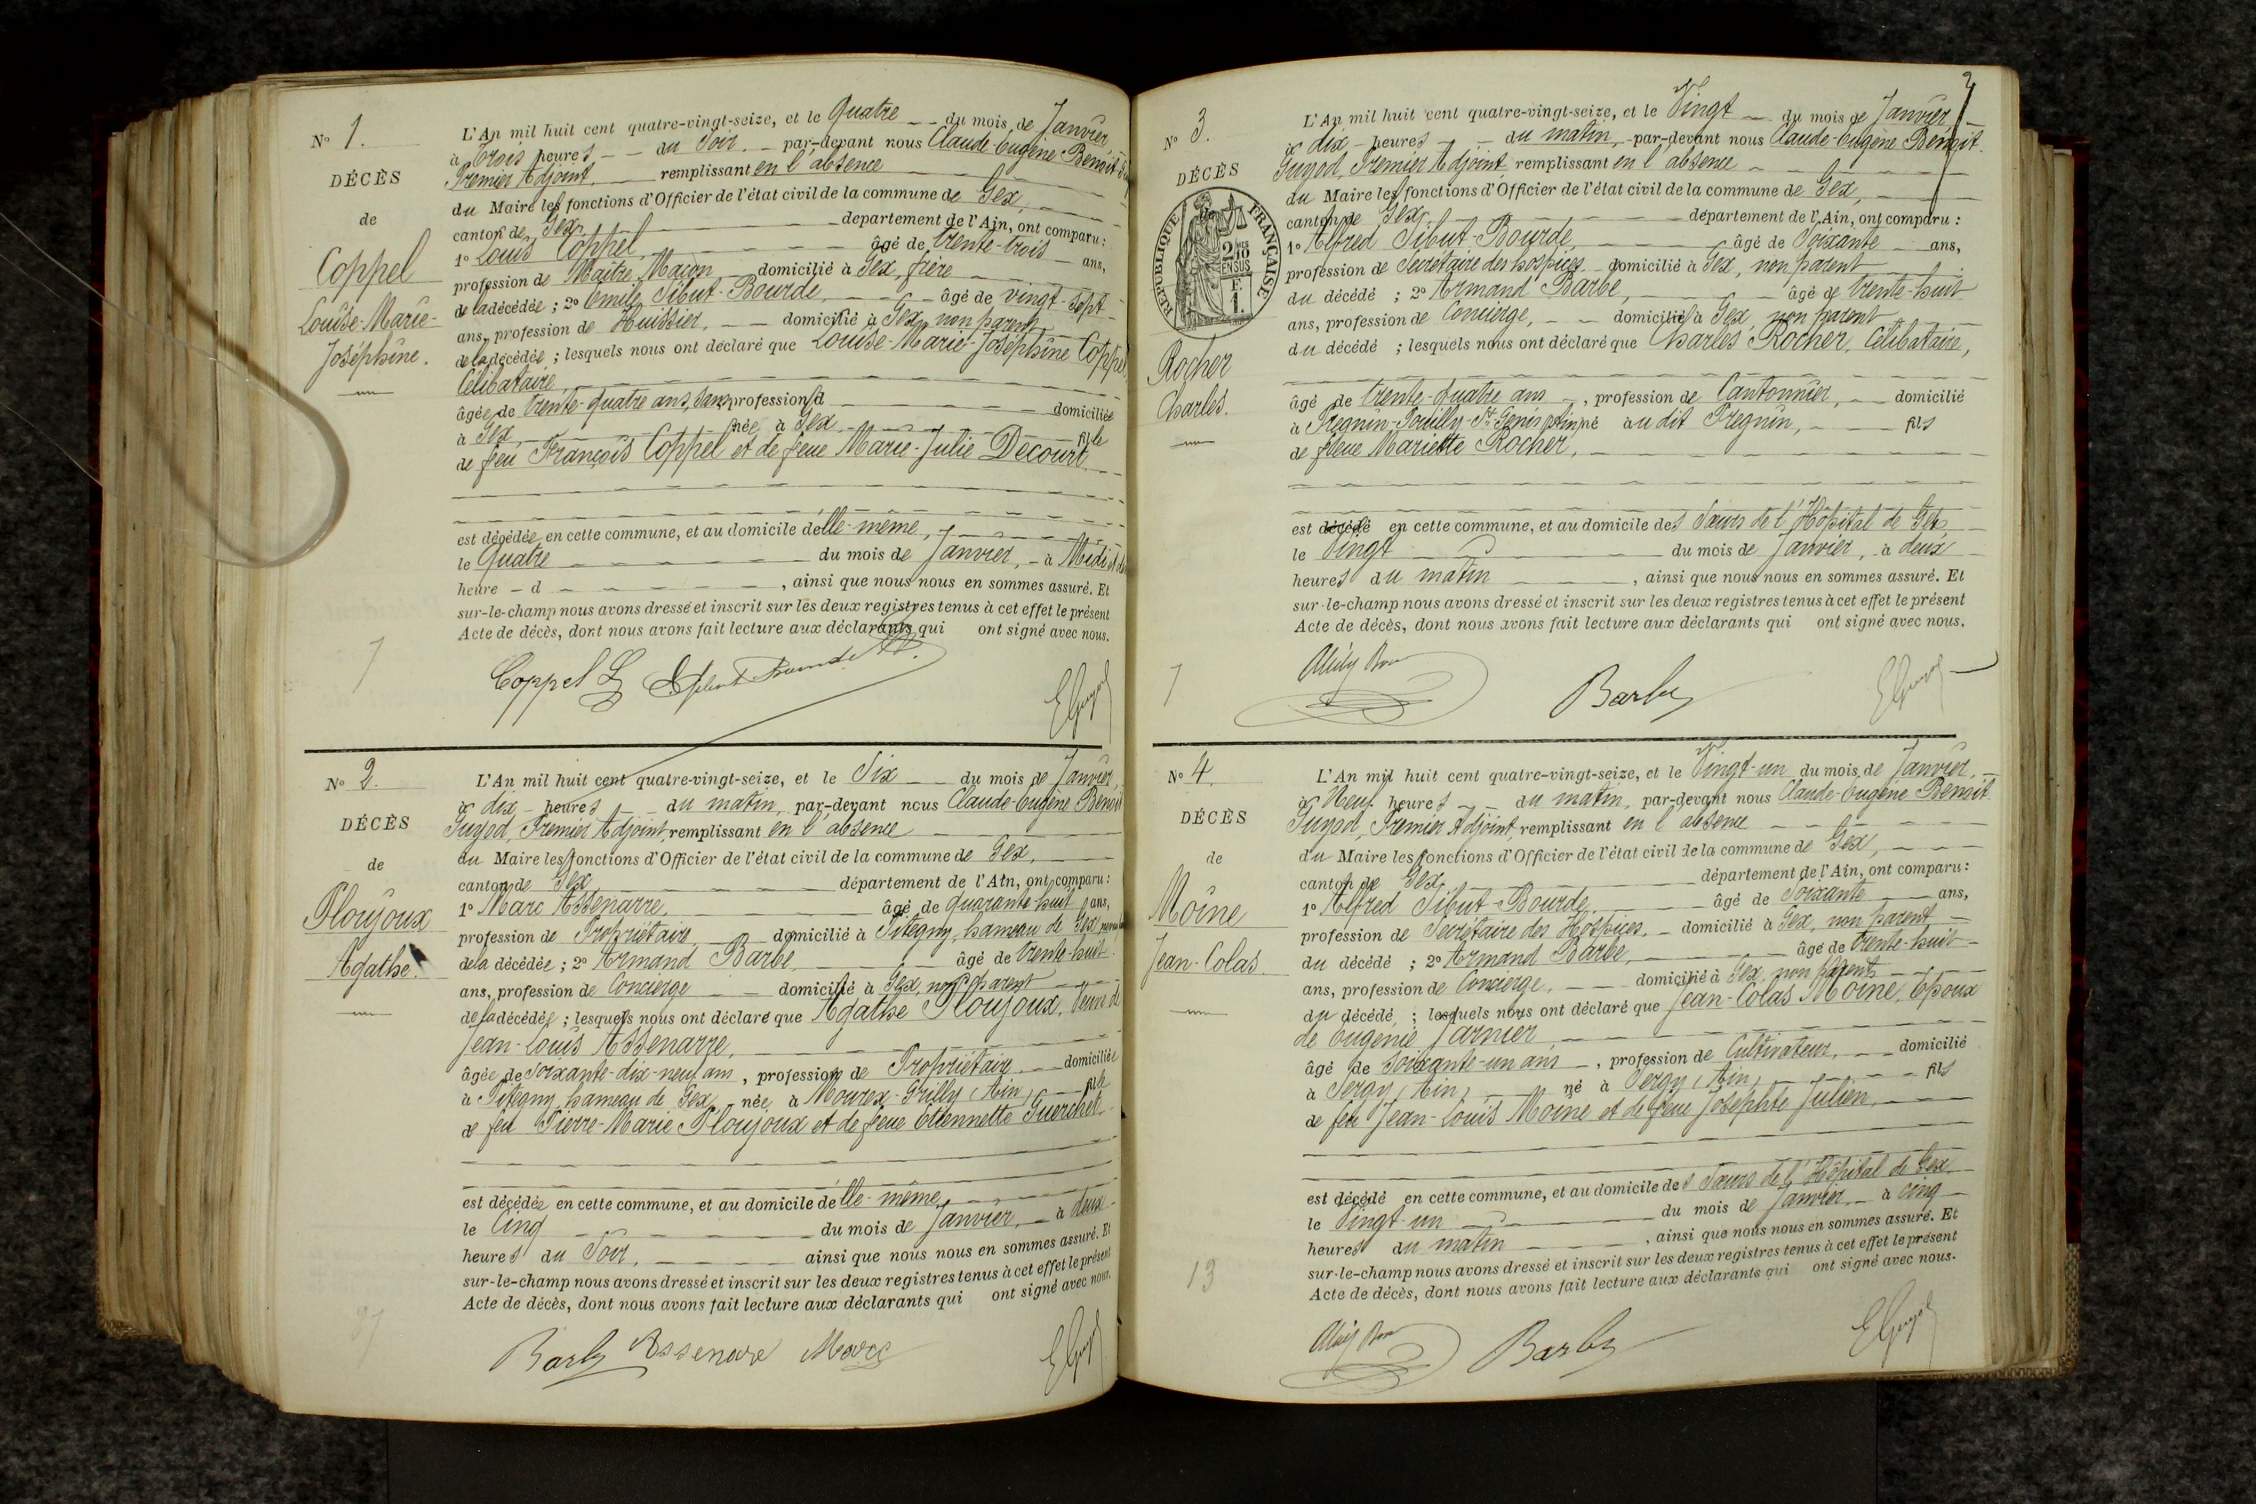 N° 1.
DÉCÈS
de
Coppel
Louise-Marie-
Joséphine.
L'An mil huit cent quatre-vingt-seize, et le Quatre du mois de Janvier,
à Trois heures du Soir. par-devant nous Claude-Eugène-Benoit
Premier Adjoint. remplissant en l'absence
du Maire les fonctions d'Officier de l'état civil de la commune de Gex,
canton de Gex département de l'Ain, ont comparu :
1° Louis Coppel, âgé de trente-trois ans,
profession de Maître Maçon domicilié à Gex, frère
de la décédée ; 2° Emile Sibut-Bourde, âgé de vingt-sept
ans, profession de Huissier, domicilié à Gex, non parent
de la décédée ; lesquels nous ont déclaré que Louise-Marie-Joséphine Coppel,
Célibataire
âgée de trente-quatre ans, sans profession d domiciliée
à Gex, née à Gex fille
de feu François Coppel et de feue Marie-Julie Decourt
est décédée en cette commune, et au domicile d'elle-même,
le Quatre du mois de Janvier, à Midi et
heure d , ainsi que nous nous en sommes assuré. Et
sur-le-champ nous avons dressé et inscrit sur les deux registres tenus à cet effet le présent
Acte de décès, dont nous avons fait lecture aux déclarants qui ont signé avec nous.
7
Coppel L Sibut Bourde E Guyod
N° 2.
DÉCÈS
de
Ploujoux
Agathe.
L'An mil huit cent quatre-vingt-seize, et le Six du mois de Janvier,
à dix heures du matin, par-devant nous Claude-Eugène Benoit
Guyod, Premier Adjoint, remplissant en l'absence
du Maire les fonctions d'Officier de l'état civil de la commune de Gex,
canton de Gex département de l'Ain, ont comparu :
1° Marc Assenarre, âgé de quarante huit ans,
profession de Propriétaire, domicilié à Pitegny, hameau de Gex,
de la décédée ; 2° Armand Barbe âgé de trente-huit
ans, profession de Concierge domicilié à Gex, non parent
de la décédée ; lesquels nous ont déclaré que Agathe Ploujoux, Veuve de
Jean-Louis Assenarre,
âgée de soixante-dix-neuf ans, profession de Propriétaire domiciliée
à Pitegny hameau de Gex, née à Mourex-Grilly (Ain) fille
de feu Pierre-Marie Ploujoux et de feue Etiennette Guerchet
est décédée en cette commune, et au domicile d'elle-même,
le Cinq du mois de Janvier, à deux
heures du Soir, ainsi que nous nous en sommes assuré. Et
sur-le-champ nous avons dressé et inscrit sur les deux registres tenus à cet effet le présent
Acte de décès, dont nous avons fait lecture aux déclarants qui ont signé avec nous.
Barbe Assenare Marc E Guyod
2
N° 3.
DÉCÈS
RÉPUBLIQUE FRANÇAISE
2/10
EN SUS
F.
1.
Rocher
Charles.
L'An mil huit cent quatre-vingt-seize, et le Vingt du mois de Janvier
à dix heures du matin, par-devant nous Claude-Eugène Benoit
Guyod, Premier Adjoint, remplissant en l'absence
du Maire les fonctions d'Officier de l'état civil de la commune de Gex,
canton de Gex département de l'Ain, ont comparu :
1° Alfred Sibut-Bourde, âgé de Soixante ans,
profession de Secrétaire des hospices domicilié à Gex, non parent
du décédé ; 2° Armand Barbe, âgé de trente-huit
ans, profession de Concierge, domicilié à Gex, non parent
du décédé ; lesquels nous ont déclaré que Charles Rocher, Célibataire,
âgé de trente-quatre ans, profession de Cantonnier, domicilié
à Prégnin-Pouilly-St Genis (Ain) né au dit Prégnin, fils
de feue Mariette Rocher,
est décédé en cette commune, et au domicile des Sœurs de l'Hôpital de Gex
le Vingt du mois de Janvier, à deux
heures du matin , ainsi que nous nous en sommes assuré. Et
sur-le-champ nous avons dressé et inscrit sur les deux registres tenus à cet effet le présent
Acte de décès, dont nous avons fait lecture aux déclarants qui ont signé avec nous.
7
Barbe E Guyod
N° 4.
DÉCÈS
de
Moine
Jean-Colas
L'An mil huit cent quatre-vingt-seize, et le Vingt-un du mois de Janvier,
à Neuf heures du matin, par-devant nous Claude-Eugène Benoit
Guyod, Premier Adjoint, remplissant en l'absence
du Maire les fonctions d'Officier de l'état civil de la commune de Gex,
canton de Gex département de l'Ain, ont comparu :
1° Alfred Sibut-Bourde âgé de Soixante ans,
profession de Secrétaire des Hospices, domicilié à Gex, non parent
du décédé ; 2° Armand Barbe, âgé de trente-huit
ans, profession de Concierge, domicilié à Gex, non parent
du décédé ; lesquels nous ont déclaré que Jean-Colas Moine, Epoux
de Eugénie Jarnier,
âgé de soixante-un ans, profession de Cultivateur, domicilié
à Sergy (Ain) né à Sergy (Ain) fils
de feu Jean-Louis Moine et de feue Josephte Julien,
est décédé en cette commune, et au domicile des Sœurs de l'Hôpital de Gex
le Vingt-un du mois de Janvier, à cinq
heures du matin , ainsi que nous nous en sommes assuré. Et
sur-le-champ nous avons dressé et inscrit sur les deux registres tenus à cet effet le présent
Acte de décès, dont nous avons fait lecture aux déclarants qui ont signé avec nous.
13
Barbe E Guyod